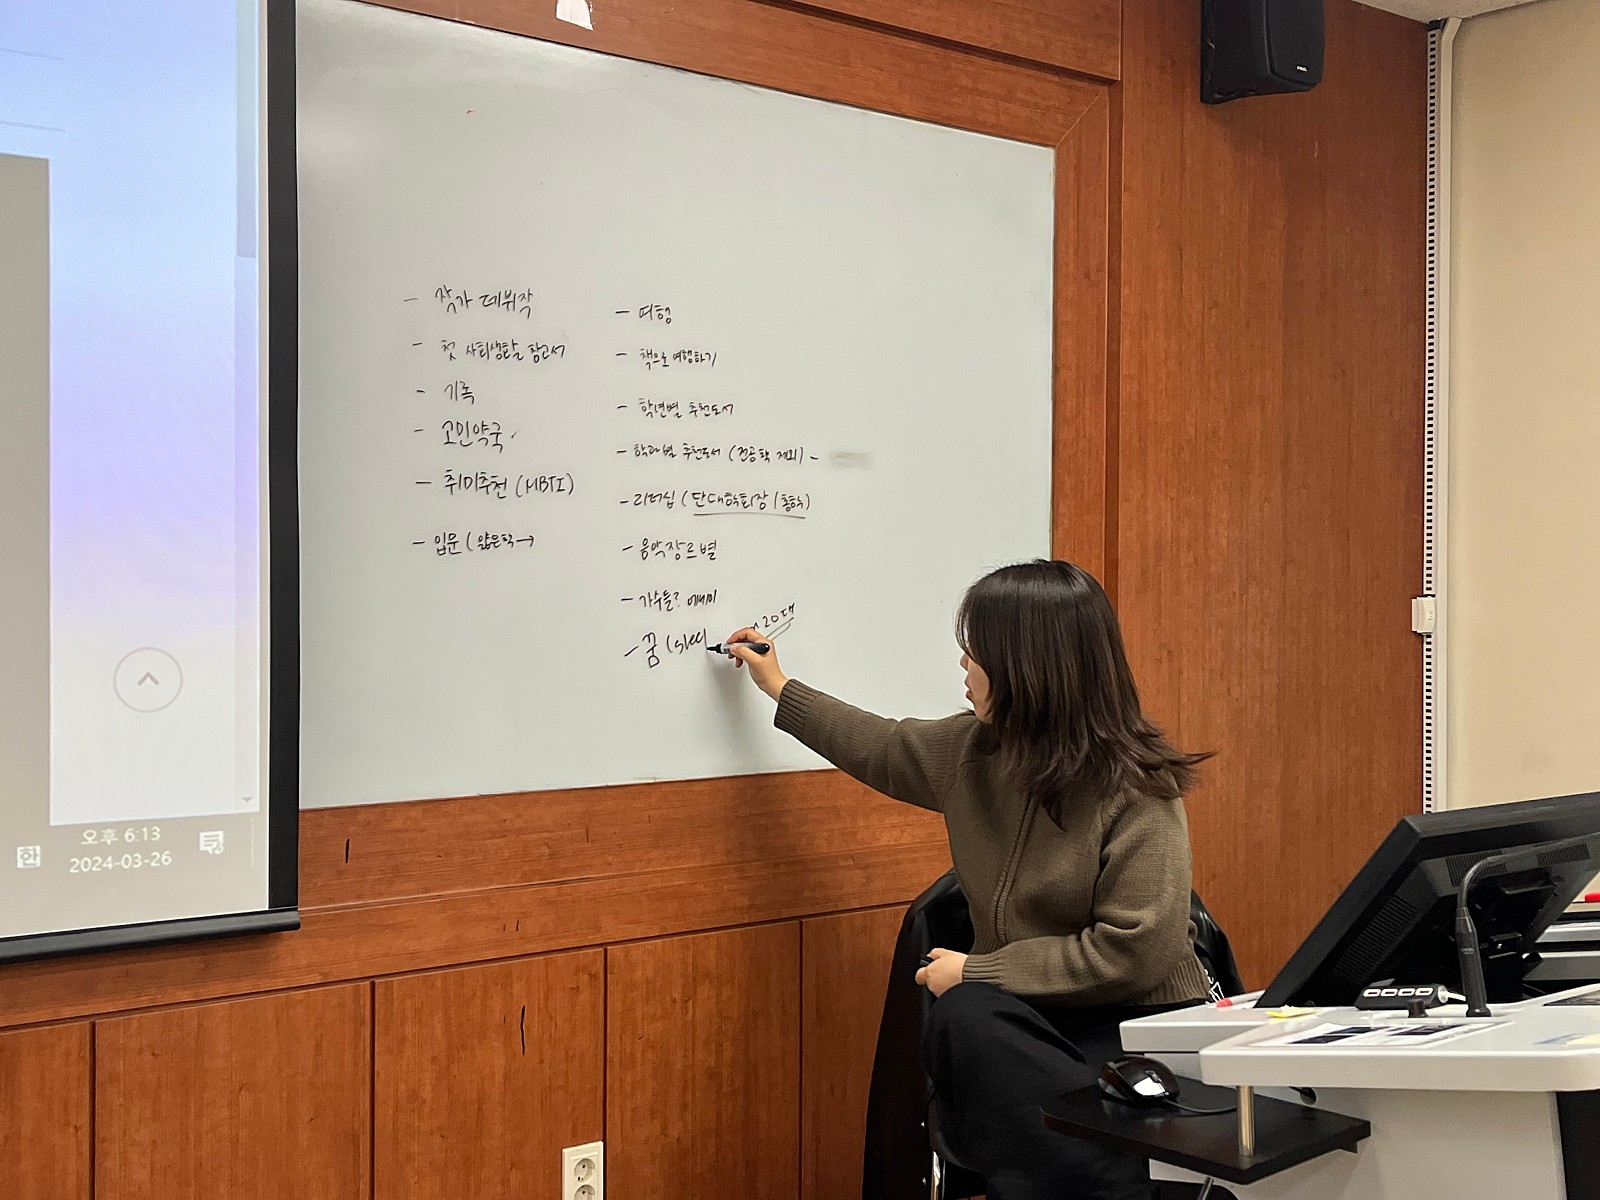 - 작가 데뷔작
- 첫 사회생활 참고서
- 기록
- 고민약국
- 취미추천 (MBTI)
- 입문 (얇은책 →
- 여행
- 책으로 여행하기
- 학년별 추천도서
- 학과별 추천도서 (전공책 제외) -
- 리더십 (단대학회장 / 총학)
- 음악장르별
- 가수들? 에세이
- 꿈 (slee
20대
한
오후 6:13
2024-03-26